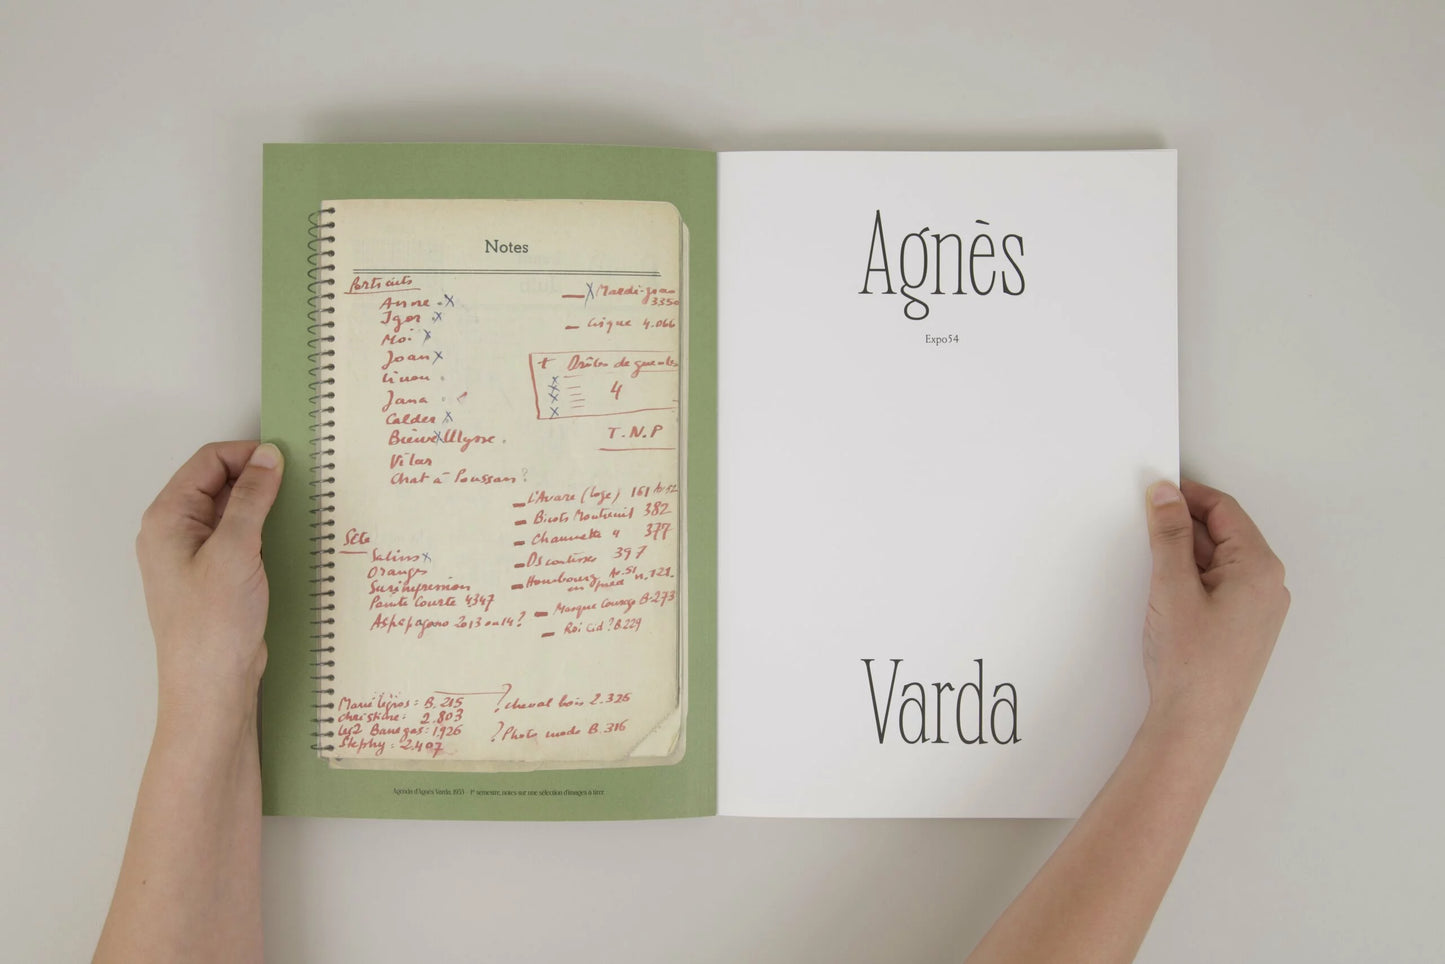 Notes
Portraits
Anne
Igor
Moi
Joan
Linou
Jana
Calder
Bièvre Ulysse
Vilar
Chat à Poussan ?
Sète
Salins
Oranges
Surimpression
Pointe Courte 4347
2013 ou 14 ?
Marie légros : B. 215
Christiane : 2.803
Les 2 Banegas : 1.926
Stephy : 2.407
Mardi-gras
3350
4.066
+ Drôles de gueules
4
T.N.P
L'Avare (loge) 161 Av. 52
Bicots Montreuil 382
377
397
Av. 51
Hambourg en pied n. 121.
Masque Courage B-273
Roi Cid ? B. 229
? cheval bois 2.326
? Photo mode B. 316
Agenda d'Agnès Varda, 1953 - 1er semestre, notes sur une sélection d'images à tirer.
Agnès
Expo54
Varda